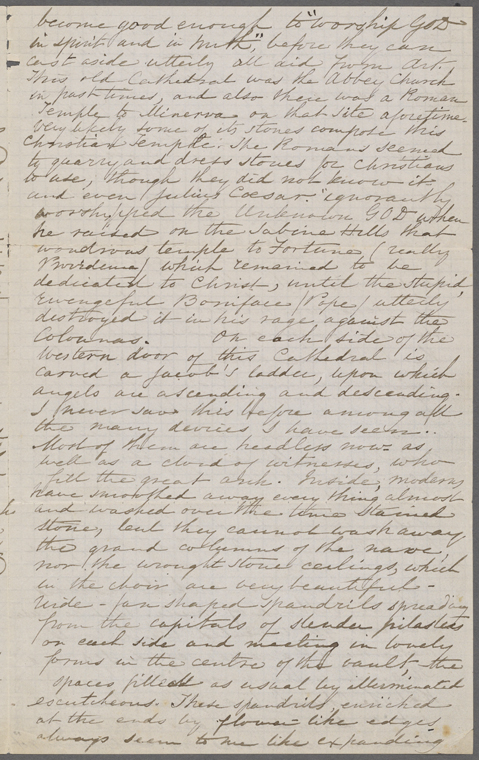 become good enough to "worship GOD
in spirit and in truth", before they can
cast aside utterly all aid from Art.
This old Cathedral was the Abbey Church
in past times, and also there was a Roman
Temple to Minerva on that site aforetime.
Very likely some of its stones compose this
Christian Temple. The Romans seemed
to quarry and dress stones for Christians
to use, though they did not know it
and even Julius Cæsar "ignorantly
worshipped the Unknown GOD" when
he raised on the Sabine Hills that
wondrous temple to Fortune (really
Providence) which remained to be
dedicated to Christ, until the stupid,
revengeful Boniface (Pope) utterly
destroyed it in his rage against the
Colonnas. On each side of the
Western door of this Cathedral is
carved a Jacob's ladder, upon which
angels are ascending and descending.
I never saw this before among all
the many devices I have seen.
Most of them are headless now - as
well as a cloud of witnesses, who
fill the great arch. Inside, moderns
have smoothed away every thing almost
and washed over the time stained
stone, but they cannot wash away
the grand columns of the nave,
nor the wrought stone ceilings, which
in the choir are very beautiful -
wide - fan shaped spandrils spreading
from the capitals of slender pilasters
on each side and meeting in lovely
forms in the centre of the vault, the
spaces filled as usual by illuminated
escutcheons. These spandrils, enriched
at the ends by flower-like edges
always seem to me like expanding